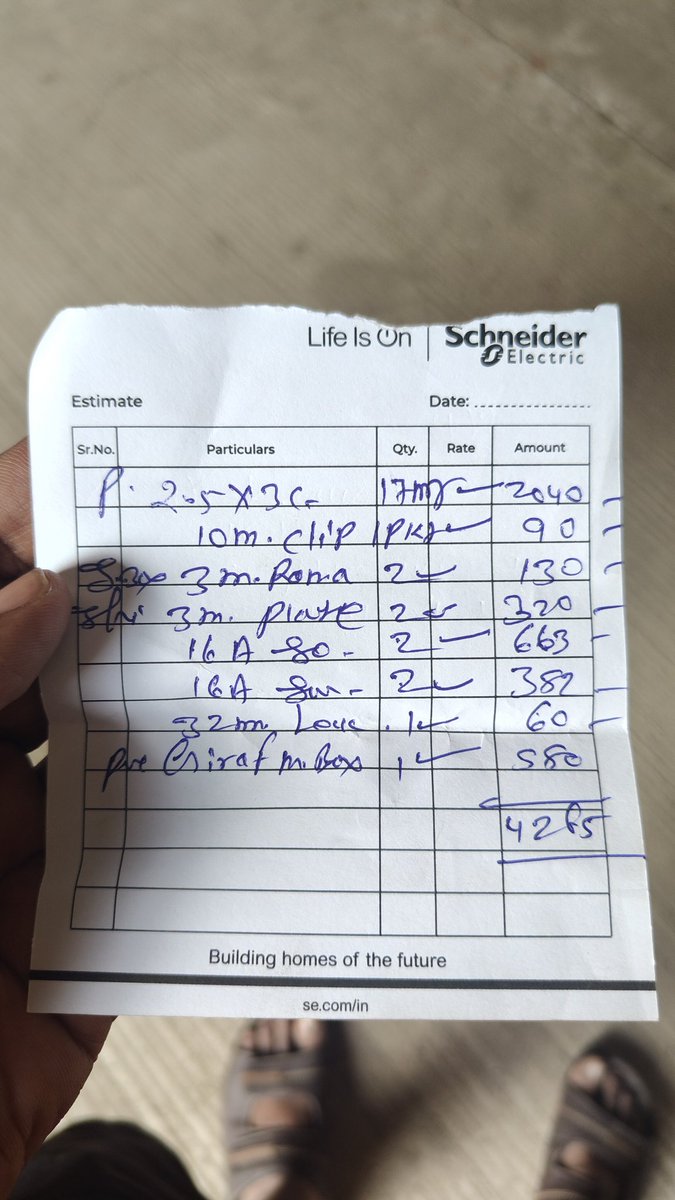 Life Is On | Schneider Electric
Estimate Date: ....................
Sr.No. Particulars Qty. Rate Amount
P. 2.5 X 3C 17m 2040
10m. clip 1Pkt 90
3m. Roma 2 130
3m. plate 2 320
16A So- 2 663
16A Sw- 2 382
32m. 1 60
Giraf m. Box 1 580
4265
Building homes of the future
se.com/in